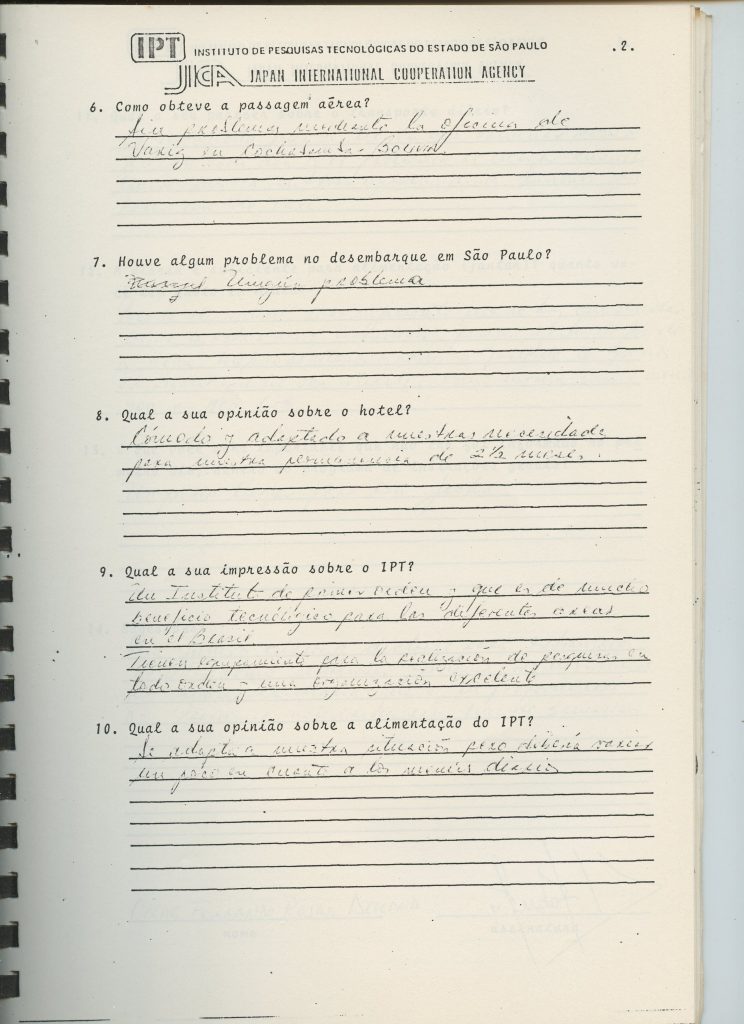 IPT INSTITUTO DE PESQUISAS TECNOLÓGICAS DO ESTADO DE SÃO PAULO .2.
JICA JAPAN INTERNATIONAL COOPERATION AGENCY
6. Como obteve a passagem aérea?
Sin problemas mediante la oficina de
Varig en Cochabamba - Bolivia.
7. Houve algum problema no desembarque em São Paulo?
Ningún problema
8. Qual a sua opinião sobre o hotel?
Cómodo y adaptado a nuestras necesidades
para nuestra permanencia de 2 1/2 meses.
9. Qual a sua impressão sobre o IPT?
Un Instituto de primer orden y que es de mucho
beneficio tecnológico para las diferentes areas
en el Brasil
Tienen equipamiento para la realización de pesquisas en
todo orden y una organización excelente
10. Qual a sua opinião sobre a alimentação do IPT?
Se adapta a nuestra situación pero debería variar
un poco en cuanto a los menús diarios